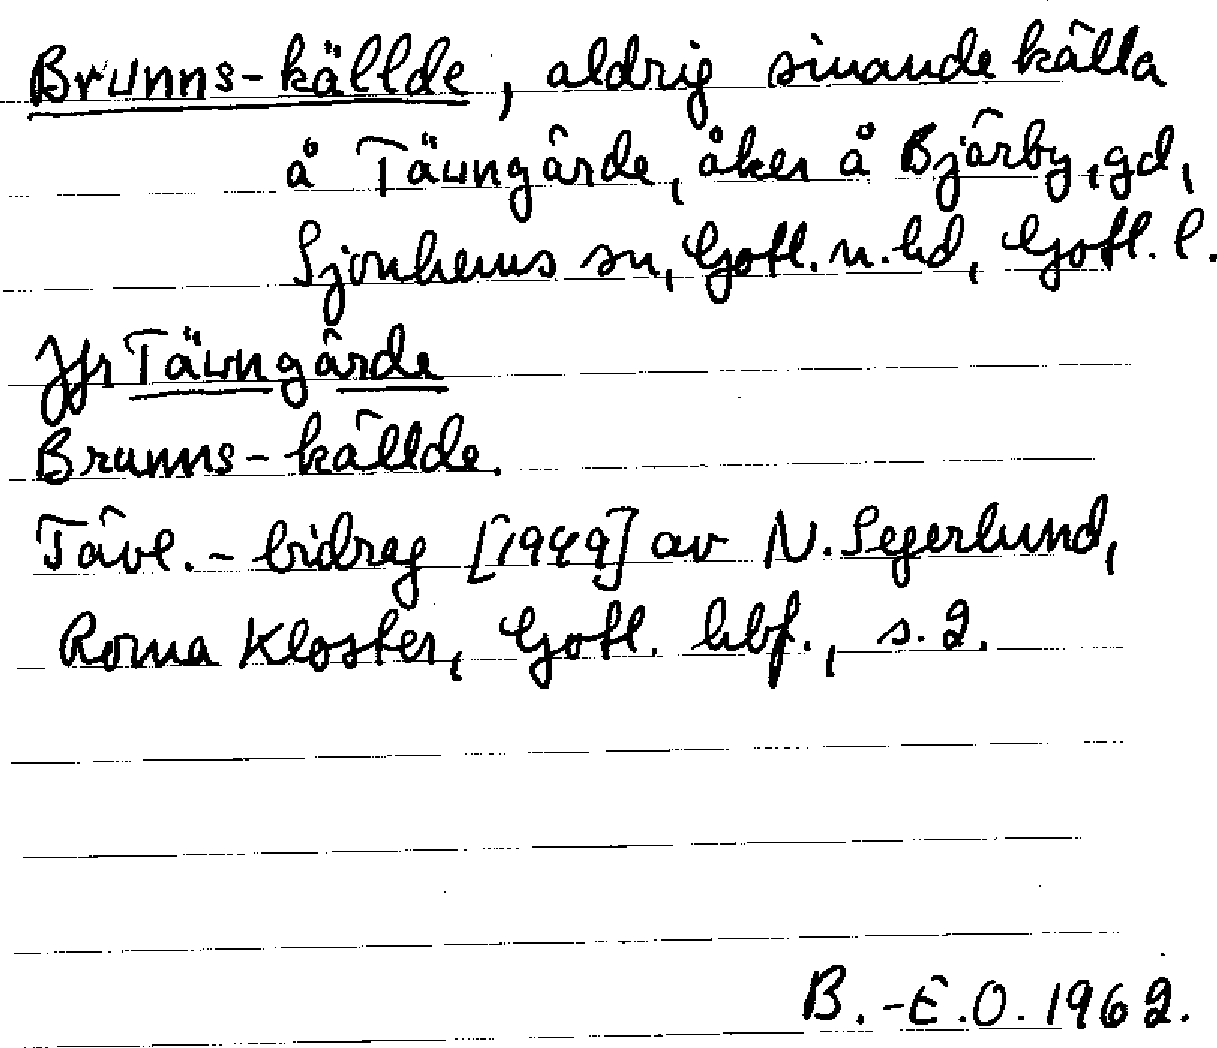 Brunns-källde, aldrig sinande källa
å Täungärde, åker å Bjärby, gd,
Sjonhems sn, Gotl. n. hd, Gotl. l.
Jfr Täungärde
Brunns-källde.
Tävl.-bidrag [1949] av N. Segerlund,
Roma Kloster, Gotl. hbf., s. 2.
B.-E.O. 1962.